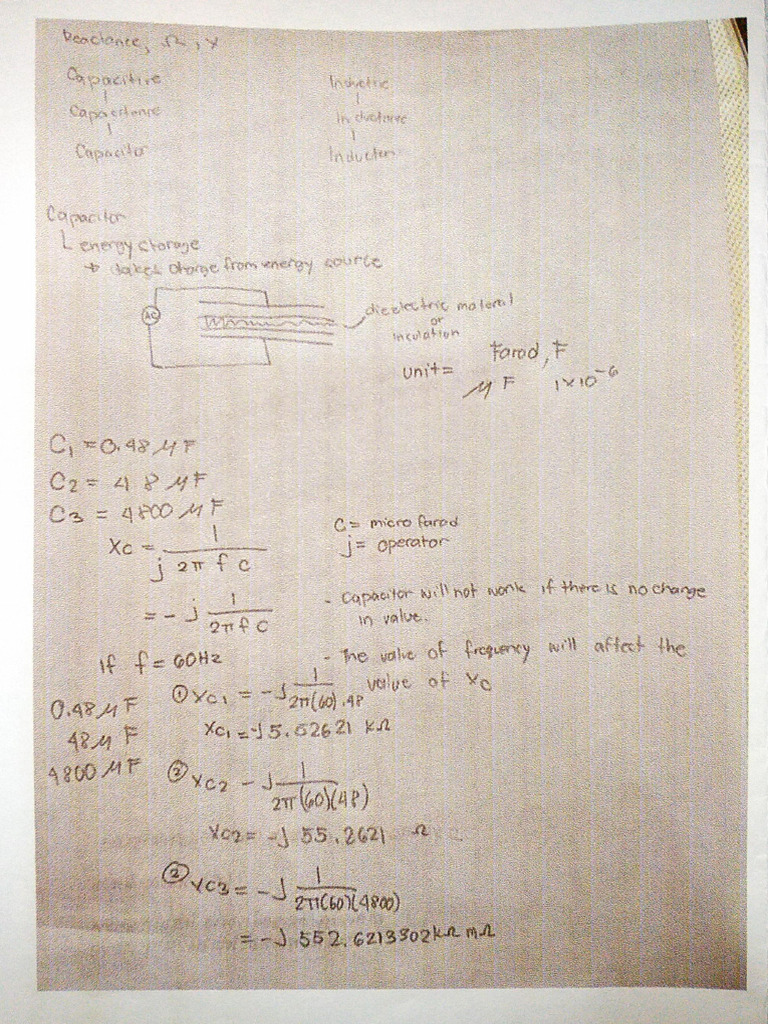 Reactance, Ω, X
Capacitive Inductive
Capacitance Inductance
Capacitor Inductor
Capacitor
energy storage
→ takes charge from energy source
AC
dielectric material
or
insulation
unit = Farad, F
μF 1x10-6
C1 = 0.48 μF
C2 = 48 μF
C3 = 4800 μF
Xc = 1 / j 2π f c
C = micro farad
j = operator
= - j 1 / 2π f c
- Capacitor will not work if there is no change
in value.
If f = 60Hz
- The value of frequency will affect the
value of Xc
0.48 μF
48 μF
4800 μF
① Xc1 = -j 1 / 2π(60).48
Xc1 = -j 5.52621 kΩ
② Xc2 - j 1 / 2π(60)(48)
Xc2 = -j 55.2621 Ω
② Xc3 = -j 1 / 2π(60)(4800)
= -j 552.6213302 kΩ mΩ